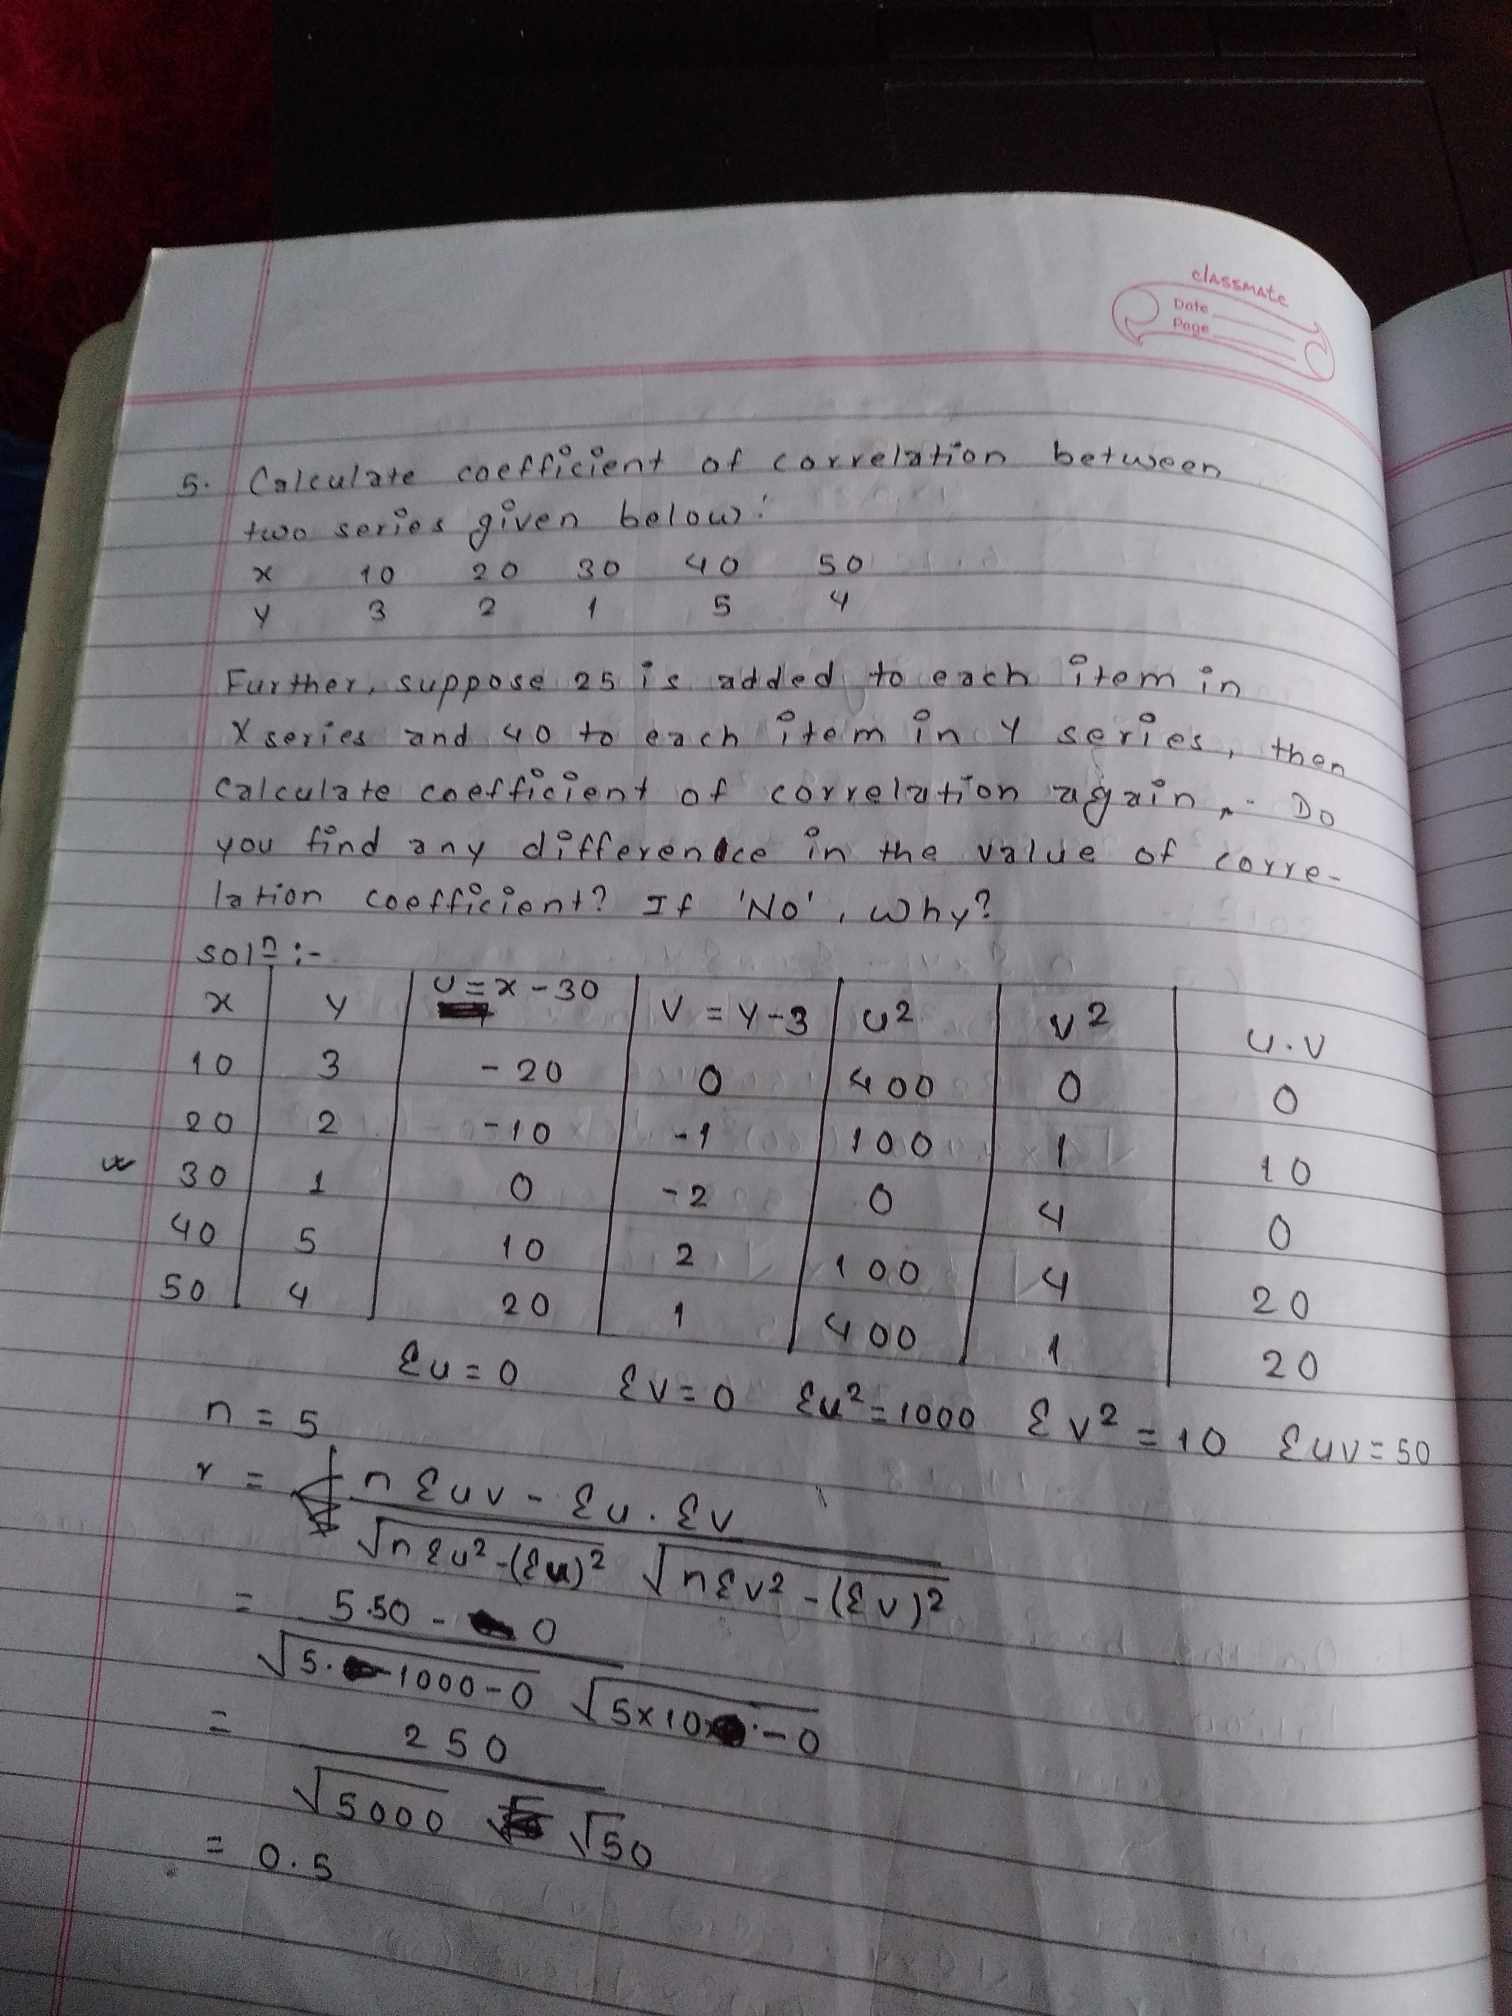 classmate
Date
Page
5. Calculate coefficient of correlation between
two series given below:
x 10 20 30 40 50
y 3 2 1 5 4
Further, suppose 25 is added to each item in
X series and 40 to each item in Y series, then
calculate coefficient of correlation again. Do
you find any difference in the value of corre-
lation coefficient? If 'No', why?
soln :-
x y u = x - 30 v = y - 3 u² v² u.v
10 3 -20 0 400 0 0
20 2 -10 -1 100 1 10
30 1 0 -2 0 4 0
40 5 10 2 100 4 20
50 4 20 1 400 1 20
Σu = 0 Σv = 0 Σu² = 1000 Σv² = 10 Σuv = 50
n = 5
r = n Σuv - Σu . Σv
√nΣu² - (Σu)² √nΣv² - (Σv)²
= 5.50 - 0
√5. 1000 - 0 √5x10 - 0
= 250
√5000 √50
= 0.5